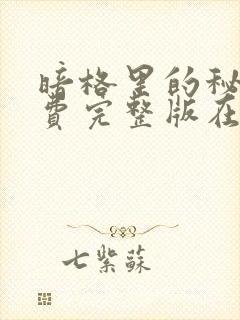 暗格里的秘
费完整版在
七紫蘇